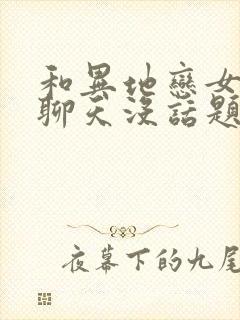 和異地戀女
聊天沒話題
夜幕下的九尾